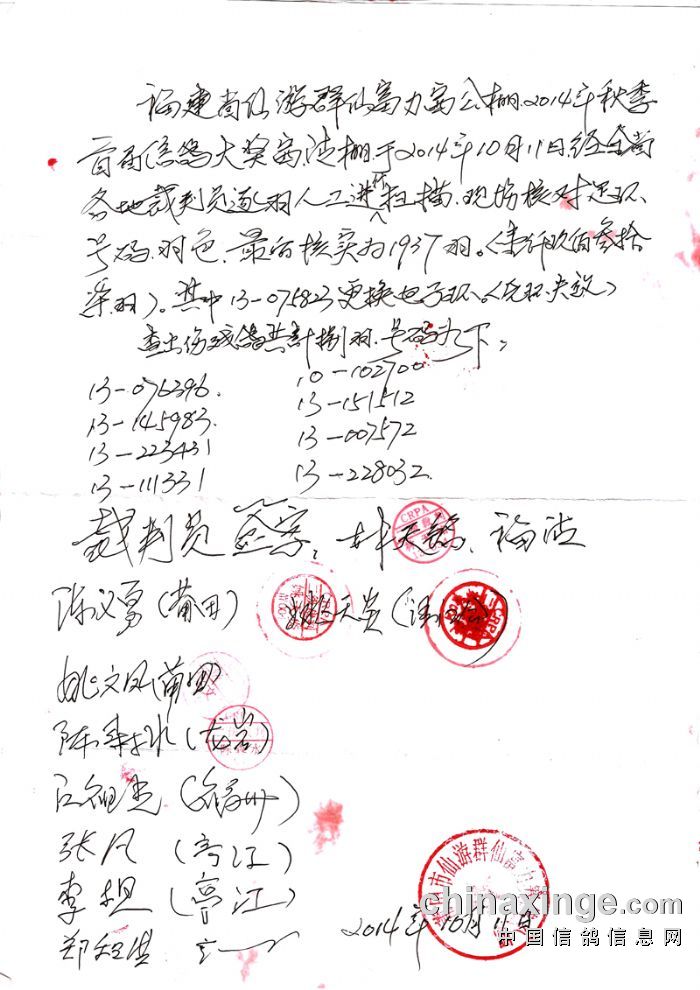 福建省仙游群仙富力赛公棚.2014年秋季
首届信鸽大奖赛.清棚.于2014年10月11日经全省
各地裁判员逐羽人工进行扫描.现场核对足环、
号码.羽色.最后核实为1937羽。(壹仟玖佰叁拾
柒羽)。其中13-075823更换电子环。(坏环失效)
查出伤残鸽共计捌羽.号码如下:
13-076396. 10-102700
13-145983. 13-151512
13-223431 13-007572
13-111331 13-228032.
裁判员签字: 林天 、福清
陈义勇(莆田) 姚天 (
姚文凤(莆田)
陈 水(龙岩)
江 (福州)
张凡(晋江)
李 (晋江)
郑
2014年10月11日
CRPA
CRPA
市仙游群仙富力
chinaxinge.com
中国信鸽信息网